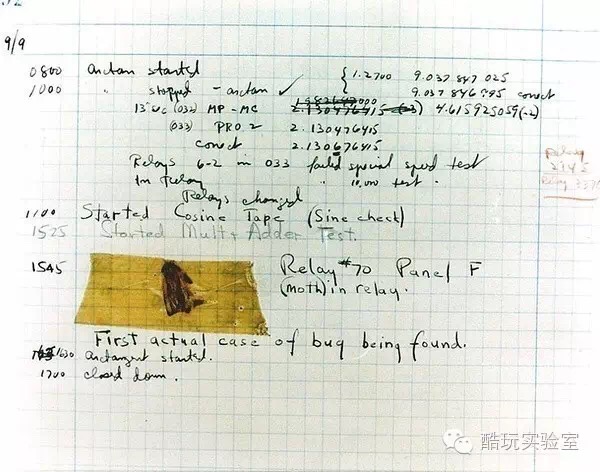 9/9
0800 arctan started { 1.2700 9.037 847 025
1000 " stopped - arctan ✓ 9.037 846 995 conect
13 (032) MP - MC 2.130476415 4.615925059(-2)
(033) PRO 2 2.130476415
conect 2.130676415
Relays 6-2 in 033 failed special speed test
In Relay " 10,000 test .
Relays changed
1100 Started Cosine Tape (Sine check)
1525 Started Mult+Adder Test.
1545 Relay #70 Panel F
(moth) in relay.
First actual case of bug being found.
1630 arctangent started.
1700 closed down.
Relay
酷玩实验室